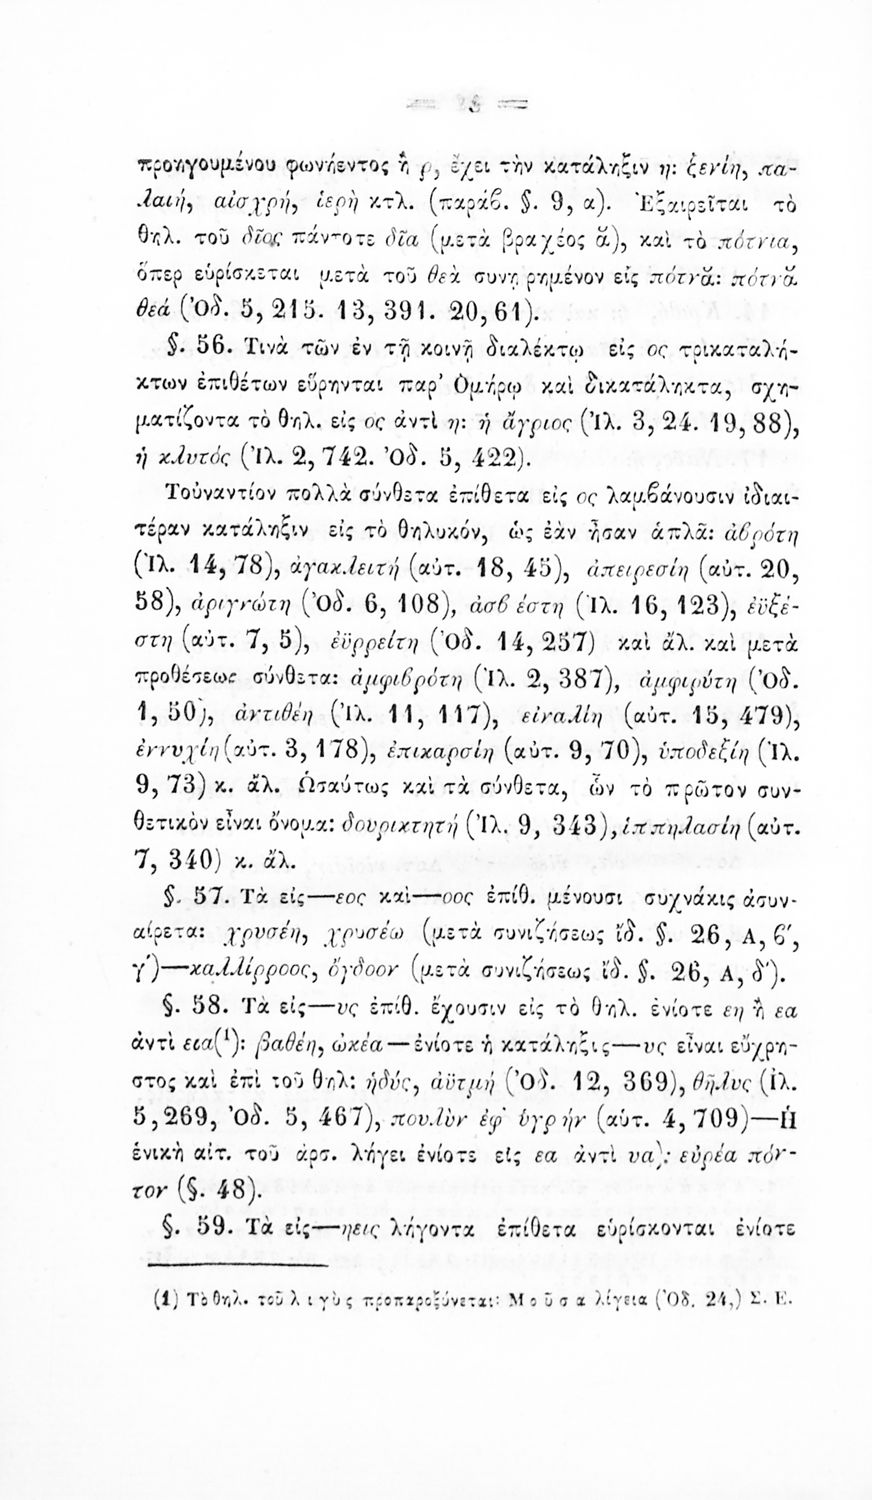 προηγουμένου φωνήεντος ἢ ρ, ἔχει τὴν κατάληξιν η: ξενίη, πα-
λαιή, αἰσχρή, ἱερὴ κτλ. (παράβ. §. 9, α). Ἐξαιρεῖται τὸ
θηλ. τοῦ δῖος πάντοτε δῖα (μετὰ βραχέος ᾰ), καὶ τὸ πότνια,
ὅπερ εὑρίσκεται μετὰ τοῦ θεὰ συνῃρημένον εἰς πότνᾰ: πότνᾰ
θεά (Ὀδ. 5, 215. 13, 391. 20, 61).
§. 56. Τινὰ τῶν ἐν τῇ κοινῇ διαλέκτῳ εἰς ος τρικαταλή-
κτων ἐπιθέτων εὕρηνται παρ' Ὁμήρῳ καὶ δικατάληκτα, σχη-
ματίζοντα τὸ θηλ. εἰς ος ἀντὶ η: ἡ ἄγριος (Ἰλ. 3, 24. 19, 88),
ἡ κλυτός (Ἰλ. 2, 742. Ὀδ. 5, 422).
Τοὐναντίον πολλὰ σύνθετα ἐπίθετα εἰς ος λαμβάνουσιν ἰδιαι-
τέραν κατάληξιν εἰς τὸ θηλυκόν, ὡς ἐὰν ἦσαν ἁπλᾶ: ἀβρότη
(Ἰλ. 14, 78), ἀγακλειτή (αὐτ. 18, 45), ἀπειρεσίη (αὐτ. 20,
58), ἀριγνώτη (Ὀδ. 6, 108), ἀσβέστη (Ἰλ. 16, 123), ἐϋξέ-
στη (αὐτ. 7, 5), ἐϋρρείτη (Ὀδ. 14, 257) καὶ ἄλ. καὶ μετὰ
προθέσεως σύνθετα: ἀμφιβρότη (Ἰλ. 2, 387), ἀμφιρύτη (Ὀδ.
1, 50), ἀντιθέη (Ἰλ. 11, 117), εἰναλίη (αὐτ. 15, 479),
ἐννυχίη (αὐτ. 3, 178), ἐπικαρσίη (αὐτ. 9, 70), ὑποδεξίη (Ἰλ.
9, 73) κ. ἄλ. Ὡσαύτως καὶ τὰ σύνθετα, ὧν τὸ πρῶτον συν-
θετικὸν εἶναι ὄνομα: δουρικτητή (Ἰλ. 9, 343), ἱππηλασίη (αὐτ.
7, 340) κ. ἄλ.
§. 57. Τὰ εἰς—εος καὶ—οος ἐπίθ. μένουσι συχνάκις ἀσυν-
αίρετα: χρυσέη, χρυσέῳ (μετὰ συνιζήσεως ἴδ. §. 26, Α, β',
γ')—καλλίρροος, ὄγδοον (μετὰ συνιζήσεως ἴδ. §. 26, Α, δ').
§. 58. Τὰ εἰς—υς ἐπίθ. ἔχουσιν εἰς τὸ θηλ. ἐνίοτε εη ἢ εα
ἀντὶ εια(1): βαθέη, ὠκέα—ἐνίοτε ἡ κατάληξις—υς εἶναι εὔχρη-
στος καὶ ἐπὶ τοῦ θηλ: ἡδύς, ἀϋτμή (Ὀδ. 12, 369), θῆλυς (Ἰλ.
5, 269, Ὀδ. 5, 467), πουλὺν ἐφ' ὑγρήν (αὐτ. 4, 709)—Ἡ
ἑνικὴ αἰτ. τοῦ ἀρσ. λήγει ἐνίοτε εἰς εα ἀντὶ υν): εὐρέα πόν-
τον (§. 48).
§. 59. Τὰ εἰς—ηεις λήγοντα ἐπίθετα εὑρίσκονται ἐνίοτε
(1) Τὸ θηλ. τοῦ λιγὺς προπαροξύνεται: Μοῦσα λίγεια (Ὀδ. 24,) Σ. Ε.